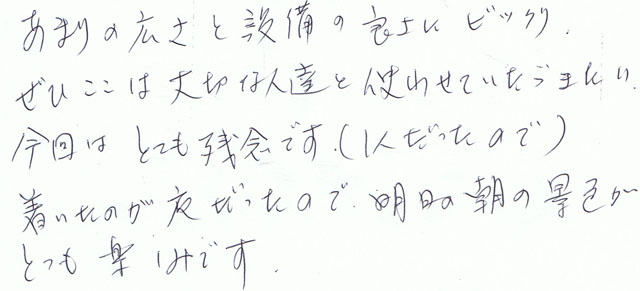 あまりの広さと設備の良さに ビックリ.
ぜひ ここは 大切な人達と 使わせていただきたい.
今回は とても 残念です.(1人だったので)
着いたのが 夜だったので.明日の朝の景色が
とっも 楽しみです.